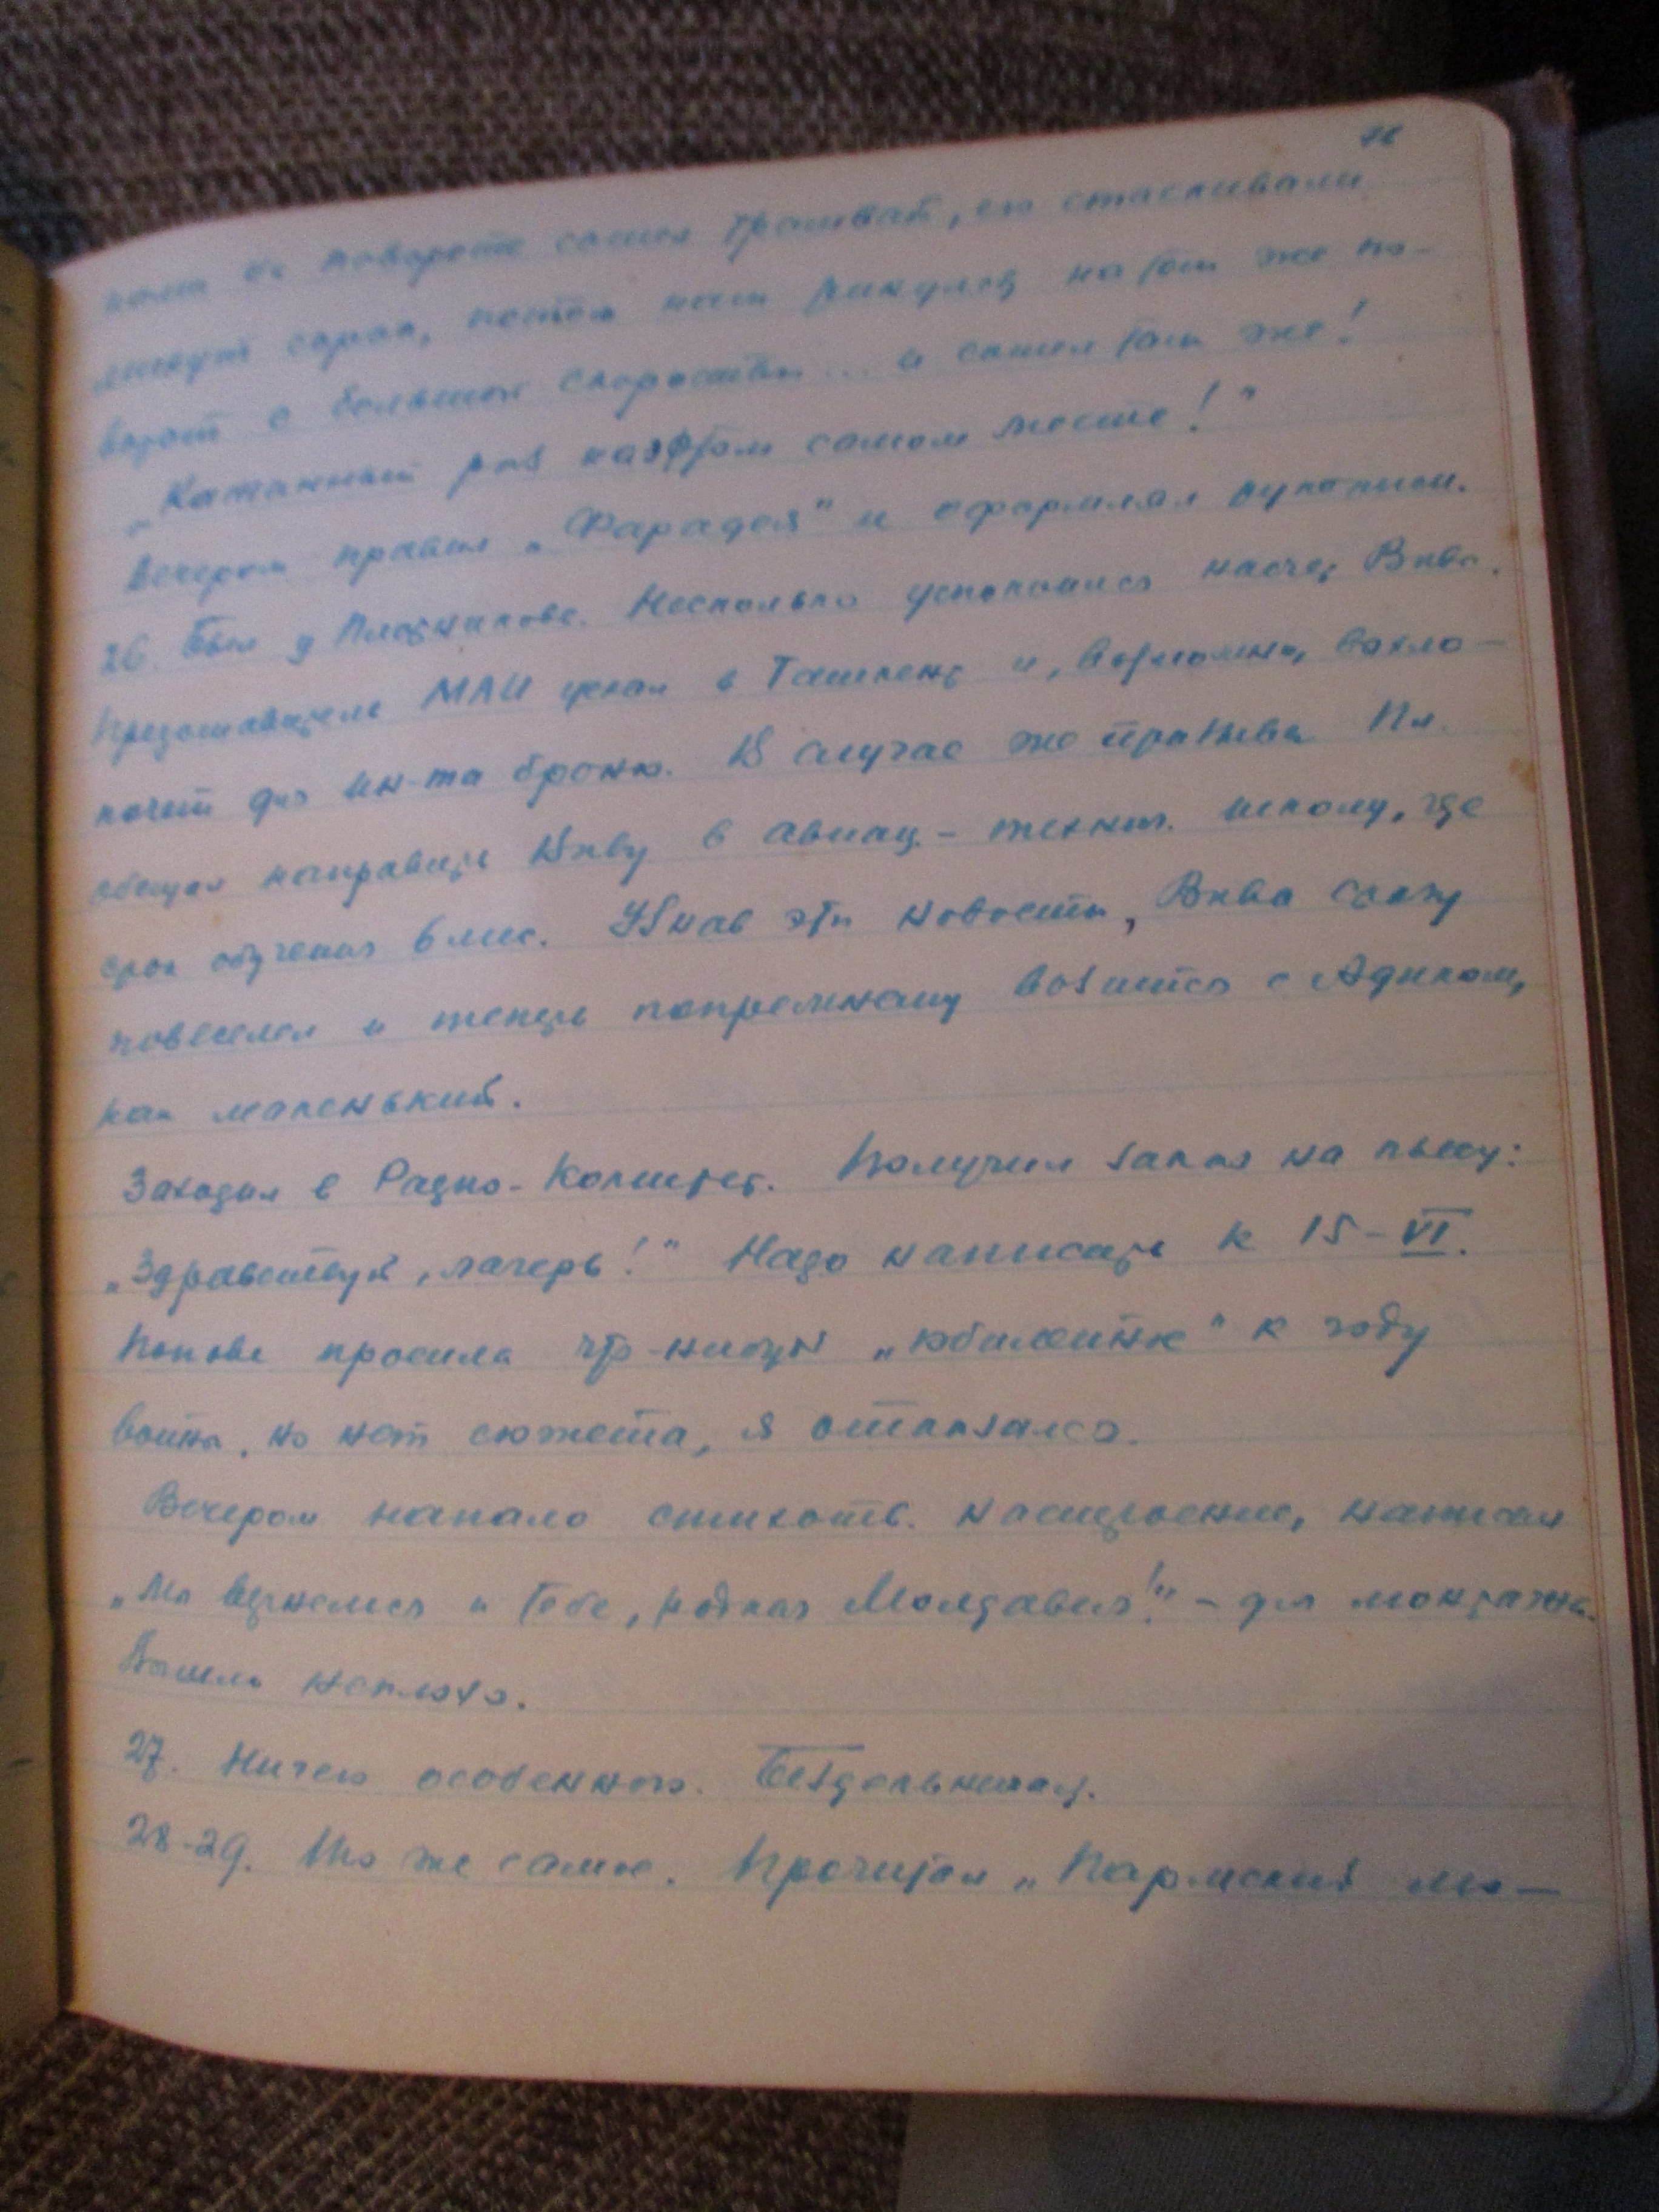 на повороте сошел трамвай, его стаскивали
минут сорок, потом наш ринулся на том же по-
ворот с большой скоростью... и сошел там же!
„Каждый раз на этом самом месте!"
Вечером правил „Фарадея" и оформлял рукописи.
26. Был у Плотникова. Несколько успокоился насчет Вивы.
Представитель МАИ уехал в Ташкент и, возможно, вахло-
почет для ин-та броню. В случае же призыва Пл.
обещал направить Виву в авиац.-технич. школу, где
срок обучения 6 мес. Узнав эти новости, Вива сразу
повеселел и теперь попрежнему возится с Адиком,
как маленький.
Заходил в Радио-Комитет. Получил заказ на пьесу:
„Здравствуй, лагерь!" Надо написать к 15-VI.
Попова просила что-нибудь „юбилейное" к году
войны, но нет сюжета, я отказался.
Вечером напало стихотв. настроение, написал
„Мы вернемся к тебе, родная Молдавия!" – для монтажа.
Вышло неплохо.
27. Ничего особенного. Бездельничал.
28-29. То же самое. Прочитал „Пармский мо-